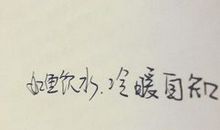 如鱼饮水,冷暖自知